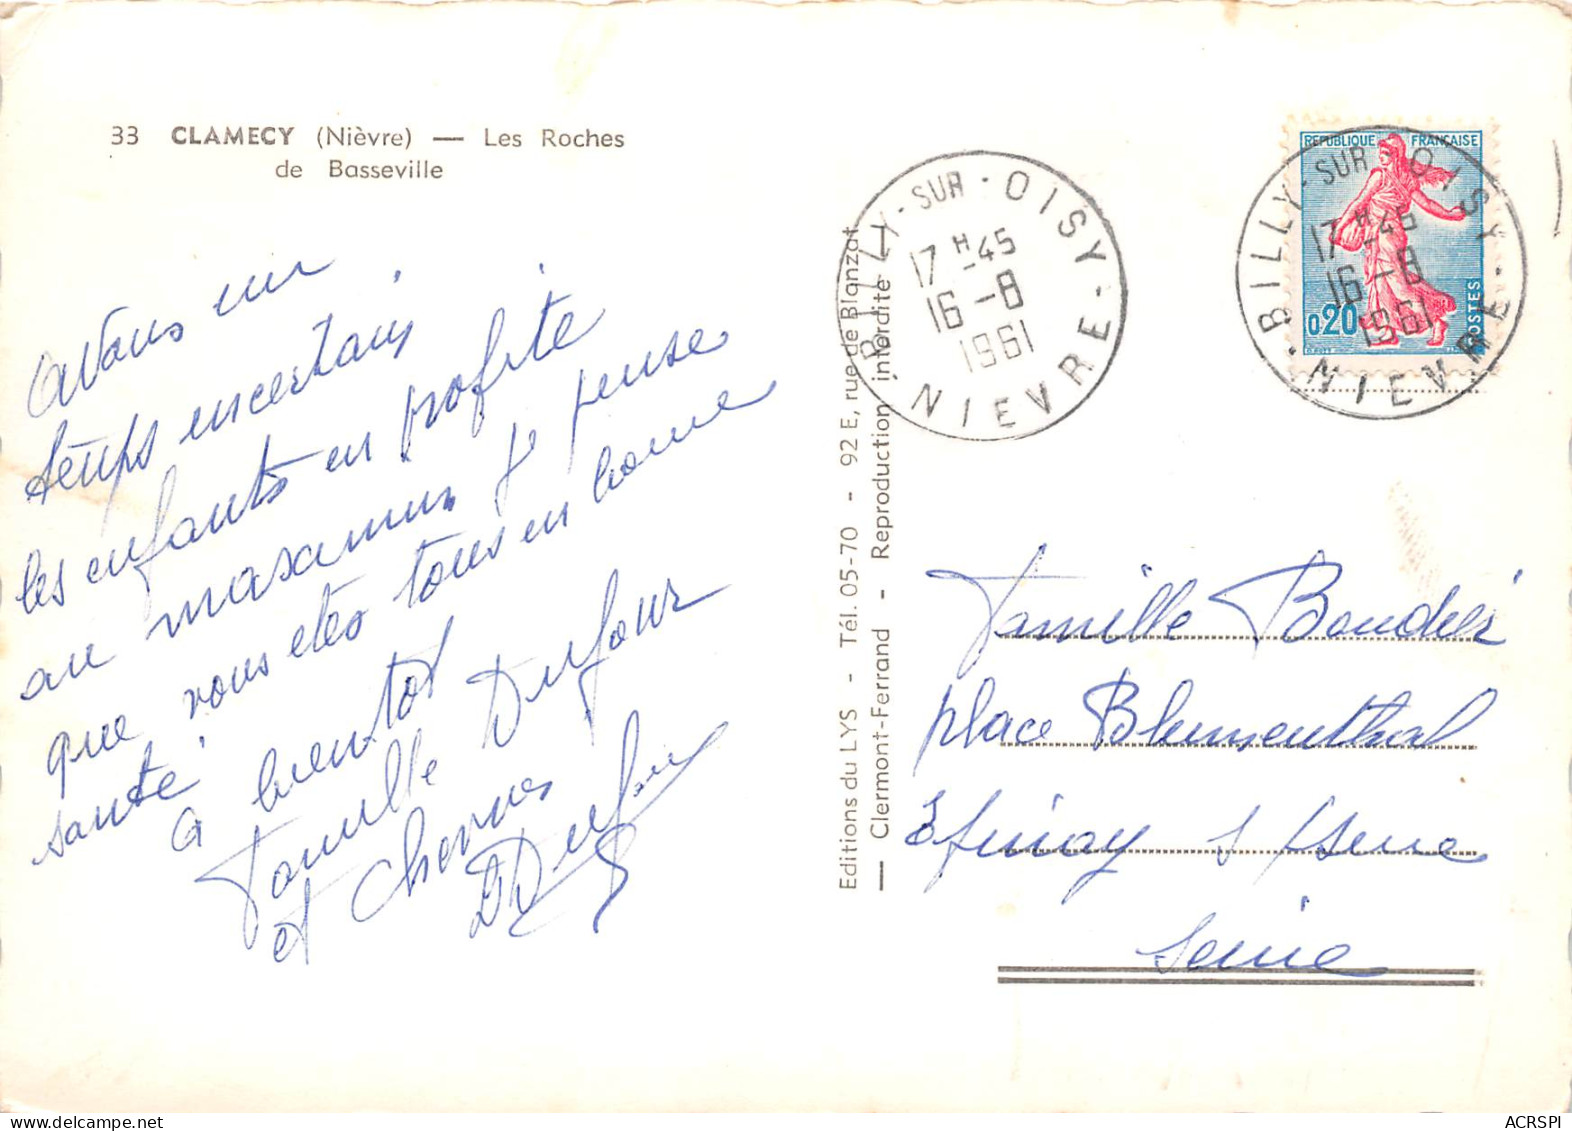 33 CLAMECY (Nièvre) — Les Roches
de Basseville
Avons un
temps incertain
les enfants en profite
au maxamun je pense
que vous êtes tous en bonne
santé
a bientot
Famille Dufour
et
Dufour
Editions du LYS - Tél. 05-70 - 92 E, rue de Blanzat
— Clermont-Ferrand - Reproduction interdite
BILLY-SUR-OISY
17 H-45
16-8
1961
NIEVRE
REPUBLIQUE FRANÇAISE
0,20
POSTES
BILLY-SUR-OISY
17 H-45
16-8
1961
NIEVRE
Famille Boudier
place Blumenthal
Epinay s/seine
Seine
ACRSPI